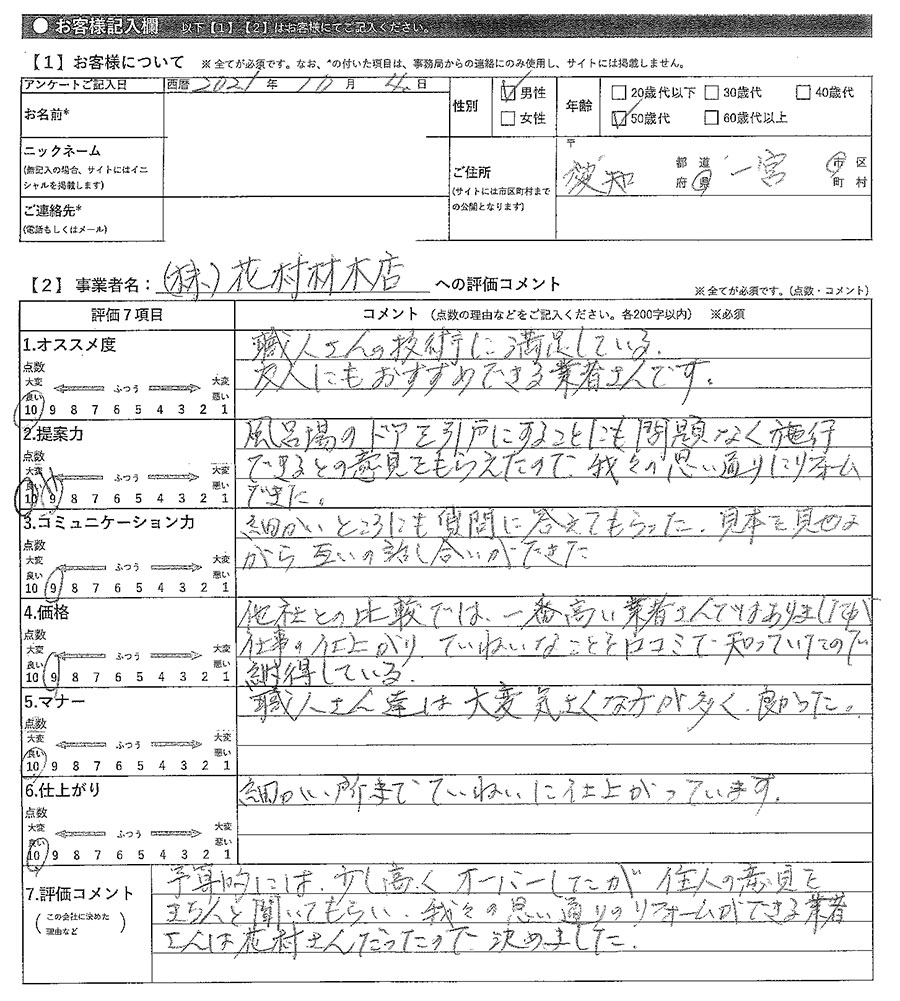 ● お客様記入欄 以下【1】【2】はお客様にてご記入ください。
【1】お客様について ※ 全てが必須です。なお、*の付いた項目は、事務局からの連絡にのみ使用し、サイトには掲載しません。
アンケートご記入日 西暦 2021 年 10 月 4 日
性別 ☑ 男性 □ 女性
年齢 □ 20歳代以下 □ 30歳代 □ 40歳代
☑ 50歳代 □ 60歳代以上
お名前*
ニックネーム
(無記入の場合、サイトにはイニシャルを掲載します)
ご連絡先*
(電話もしくはメール)
ご住所
(サイトには市区町村までの公開となります)
〒
愛知 都 道 府 県 一宮 市 区 町 村
【2】事業者名: (株)花村材木店 への評価コメント ※ 全てが必須です。(点数・コメント)
評価7項目 コメント (点数の理由などをご記入ください。各200字以内) ※必須
1.オススメ度
点数
大変良い ふつう 大変悪い
10 9 8 7 6 5 4 3 2 1
職人さんの技術に満足している。
友人にもおすすめできる業者さんです。
2.提案力
点数
大変良い ふつう 大変悪い
10 9 8 7 6 5 4 3 2 1
風呂場のドアを引戸にすることにも問題なく施行
できるとの意見をもらえたので、我々の思い通りにリホーム
できた。
3.コミュニケーション力
点数
大変良い ふつう 大変悪い
10 9 8 7 6 5 4 3 2 1
細かいところにも質問に答えてもらった。見本を見せな
がら互いの話し合いができた
4.価格
点数
大変良い ふつう 大変悪い
10 9 8 7 6 5 4 3 2 1
他社との比較では、一番高い業者さんではありましたが
仕事の仕上がり ていねいなことを口コミで知っていたので
納得している。
5.マナー
点数
大変良い ふつう 大変悪い
10 9 8 7 6 5 4 3 2 1
職人さん達は大変気さくな方が多く、良かった。
6.仕上がり
点数
大変良い ふつう 大変悪い
10 9 8 7 6 5 4 3 2 1
細かい所まで ていねいに仕上がっています。
7.評価コメント
(この会社に決めた理由など)
予算的には、少し高く オーバーしたが 住人の意見を
きちんと聞いてもらい、我々の思い通りのリフォームができる業者
さんは花村さんだったので 決めました。